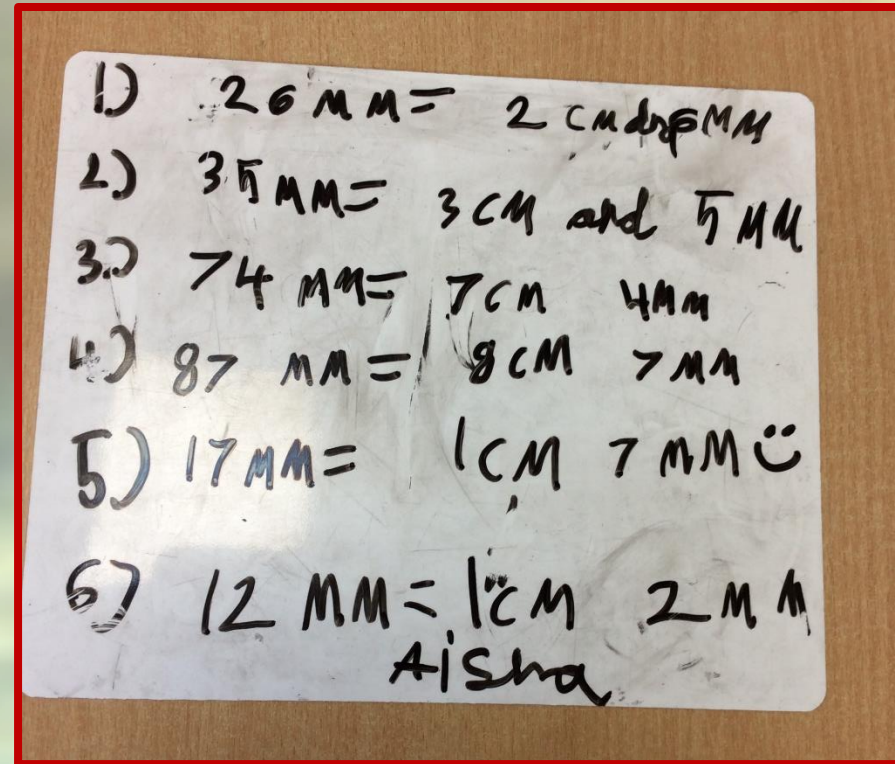 1) 26 MM= 2 CM 6MM
2) 35 MM= 3 CM and 5 MM
3.) 74 MM= 7CM 4MM
4) 87 MM= 8CM 7 MM
5) 17 MM= 1CM 7 MM
6) 12 MM= 1CM 2 MM
Aisha